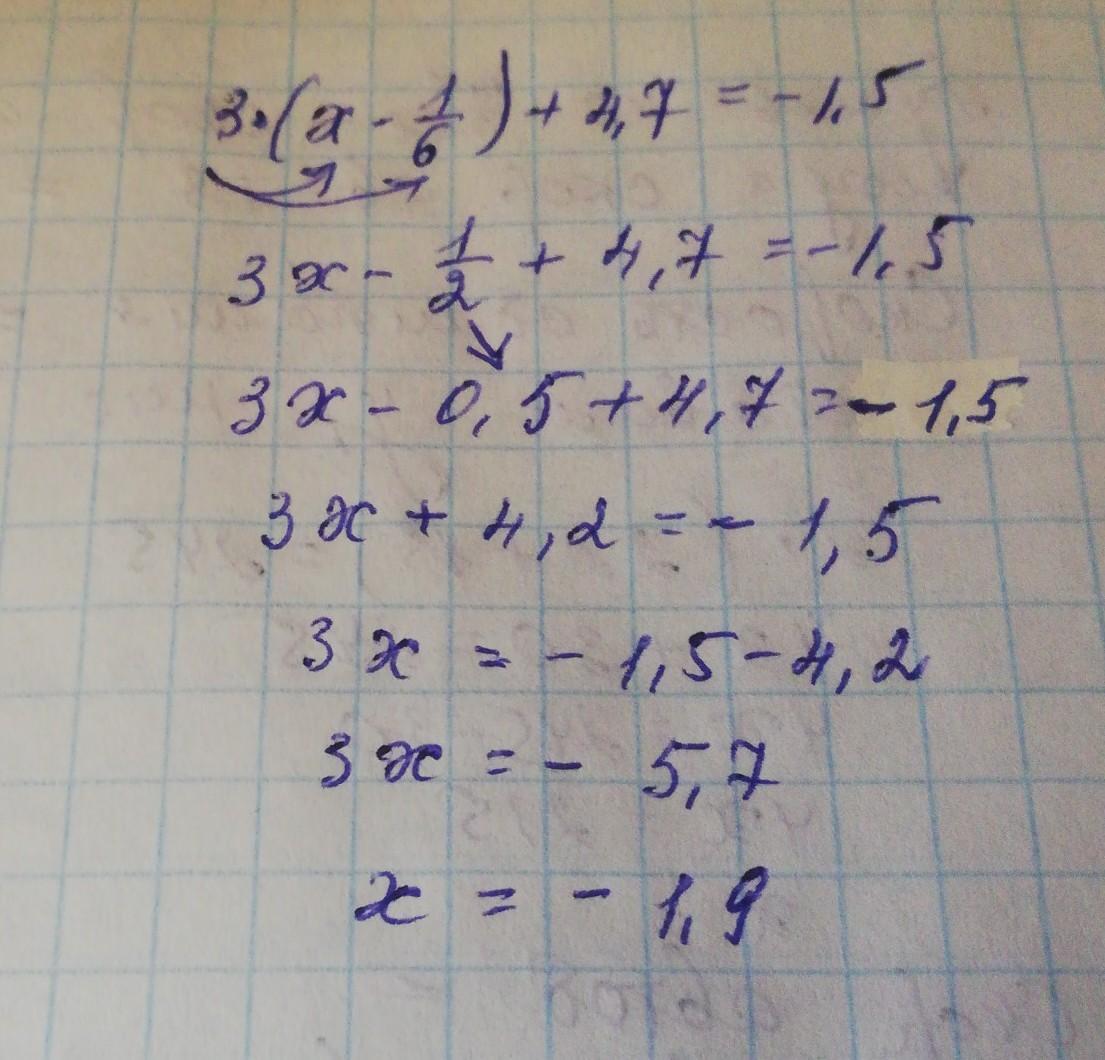 3·(x - 1/6) + 4,7 = -1,5
3x - 1/2 + 4,7 = -1,5
3x - 0,5 + 4,7 = -1,5
3x + 4,2 = - 1,5
3x = - 1,5 - 4,2
3x = - 5,7
x = - 1,9